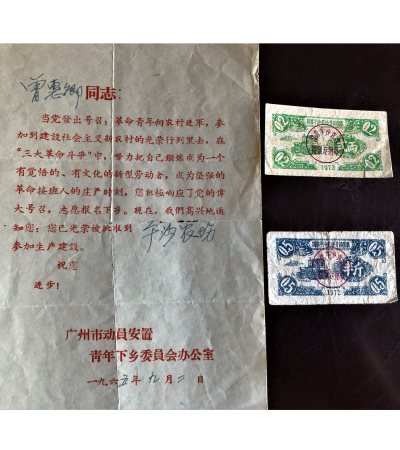 曾惠卿同志：
当党发出号召：革命青年向农村进军，参
加到建设社会主义新农村的光荣行列里去，在
“三大革命斗争”中，努力把自己锻炼成为一个
有觉悟的、有文化的新型劳动者，成为坚强的
革命接班人的庄严时刻，您积极响应了党的伟
大号召，志愿报名下乡。现在，我们高兴地通
知您：您已光荣被批准到平沙农场
参加生产建设。
祝您
进步！
广州市动员安置
青年下乡委员会办公室
一九六五年九月二日
02
02
02
02
1973
05
05
05
05
1973